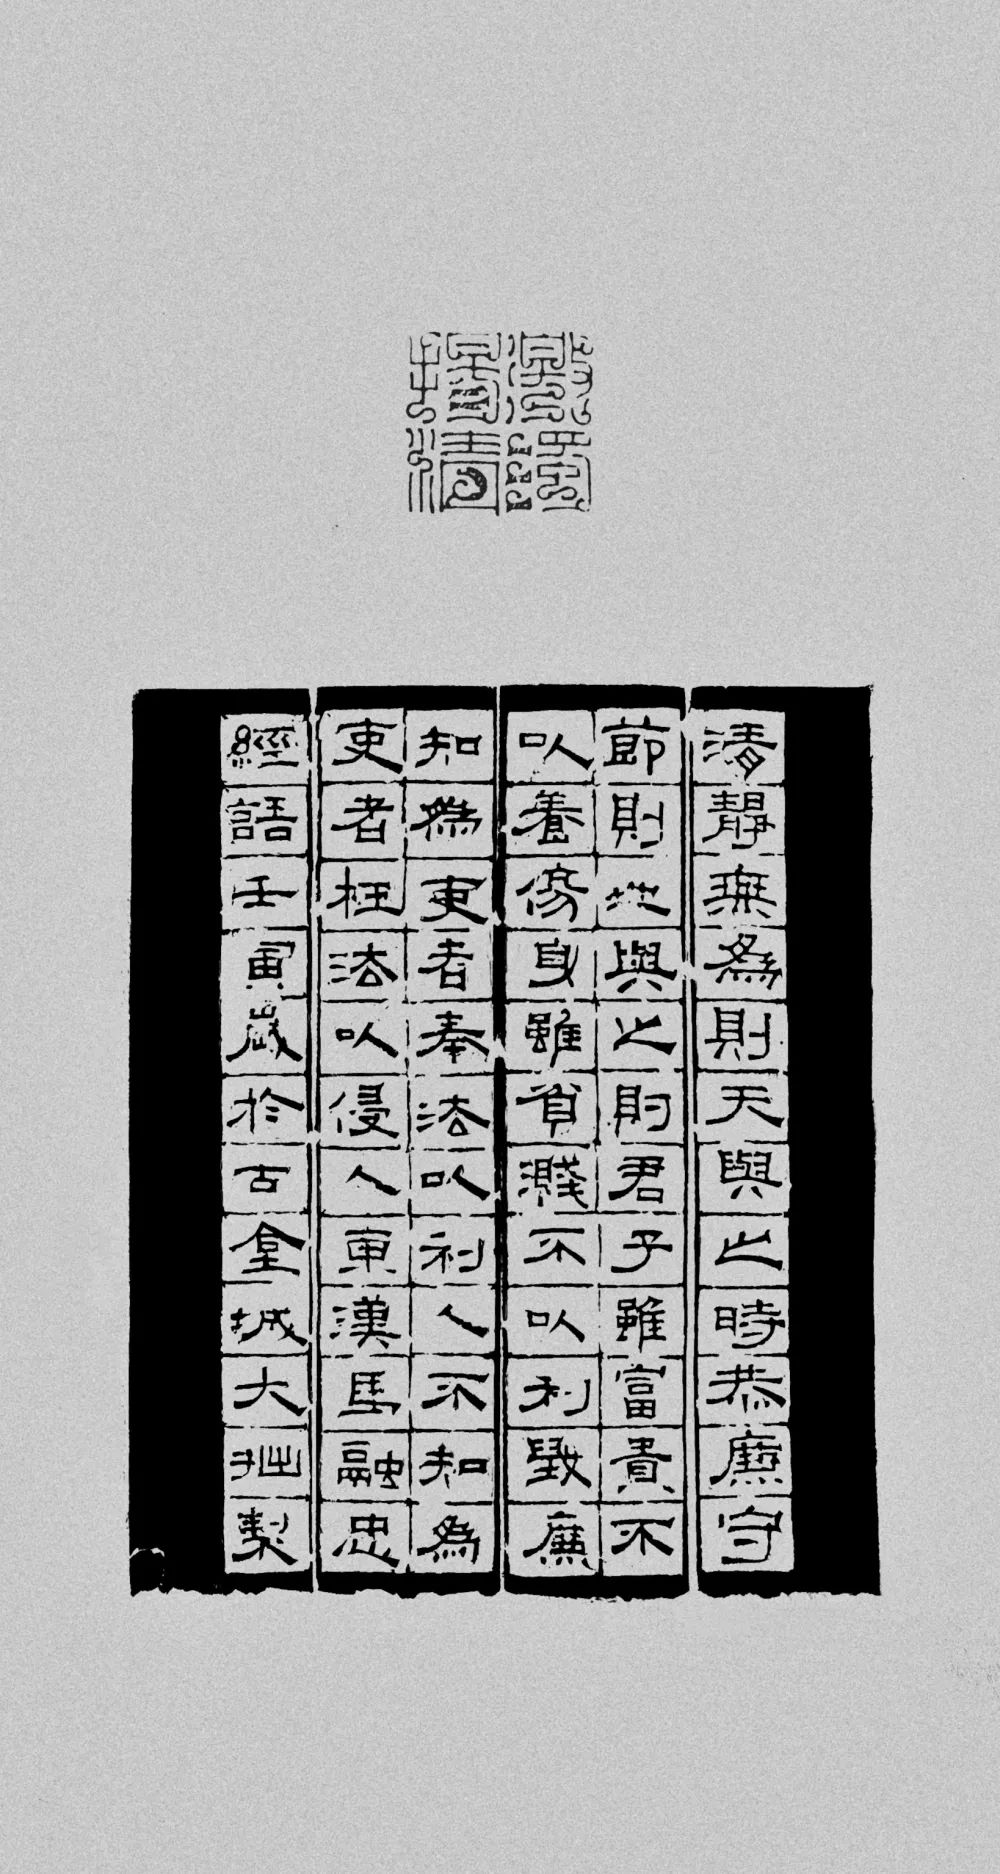 激濁
揚清
清靜無為則天與之時恭廉守
節則地與之財君子雖富貴不
以養傷身雖貧賤不以利毀廉
知為吏者奉法以利人不知為
吏者枉法以侵人東漢馬融忠
經語壬寅歲於古城大拙製